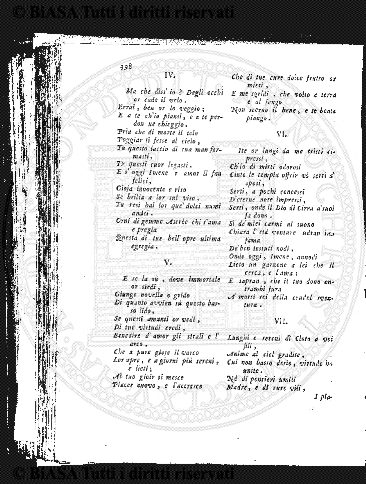 © BiASA Tutti i diritti riservati
398
IV.
Ma che diss' io? Degli occhi
or cade il velo.
Errai, ben or lo veggio;
E a te ch'io piansi, e a te per-
don ne chieggio.
Pria che di morte il telo
Poggiar ti fesse al cielo,
Tu questo laccio di tua man for-
masti.
Tu questi cuor legasti.
E s'oggi Imene e amor li fan
felici,
Gioja innocente e riso
Se brilla a lor sul viso,
Tu sarai lor que' dolci nomi
andri.
Ogni di gemme Ascrèe chi t'ama
e pregia
Questa di tue bell' opre ultima
egregia.
V.
E se la sù, dove immortale
or siedi,
Giunge novella o grido
Di quanto avvien su questo bas-
so lido,
Se questi amanti or vedi,
Di tue virtudi eredi,
Benedire d'amor gli strali e l'
arco,
Che a pure gioje il varco
Lor apre, e a giorni più sereni,
e lieti;
Al tuo gioir si mesce
Piacer nuovo, e l'accresce
Che di tue cure dolce frutto or
mieti,
E me sgridi, che volto a terra
e al fango
Non scerno il bene, e te beata
piango.
VI.
Ite or lungi da me tristi ci-
pressi,
Ch'io di mirti odorosi
Cinto le tempie offrir vò serti a'
sposi,
Serti, a pochi concessi
D'eterne note impressi,
Serti, onde il Dio di Cirra a' suoi
fa dono.
Sì de' miei carmi al suono
Chiara l' età ventura udran la
fama
De' ben tessuti nodi,
Onde oggi, Imene, annodi
Lieto un garzone a lei che il
cerca, e l'ama;
E sapran, che il tuo dono en-
trambi fura
A' morsi rei della crudel ven-
tura.
VII.
Lunghi e sereni di Cloto a voi
fili,
Anime al ciel gradite,
Cui non basso desio, virtude ha
unite.
Nè di pensieri umili
Madre, e di cure vili,
I pla-
© BiASA Tutti i diritti riservati